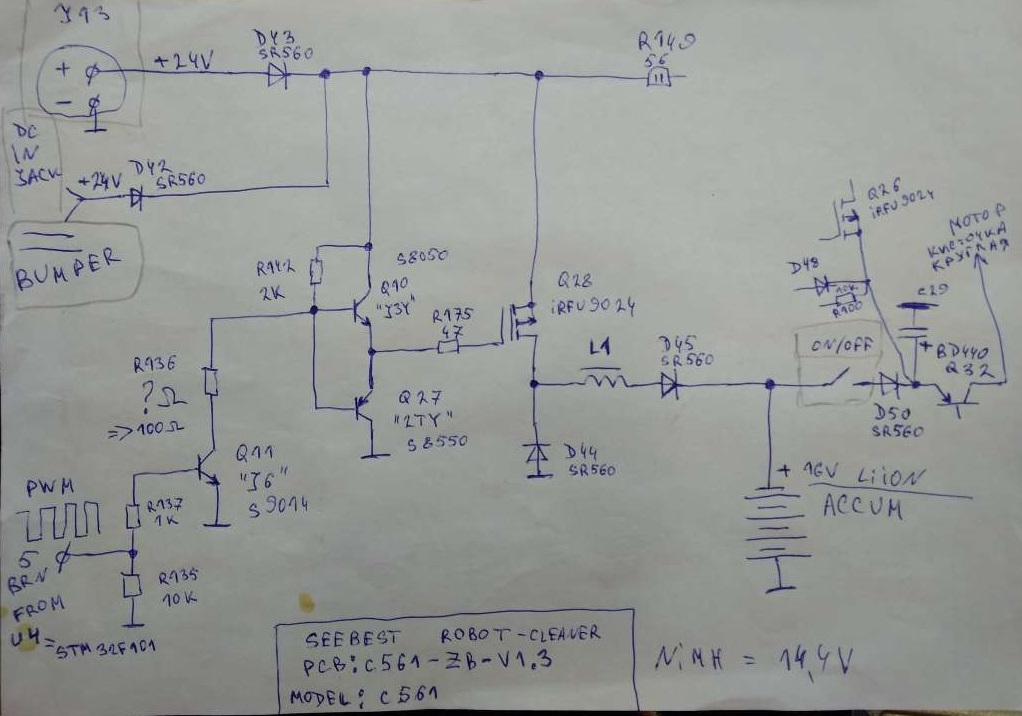 J13
+24V
D43
SR560
R140
56
+
−
DC
IN
JACK
+24V
D42
SR560
BUMPER
Q26
iRFU9024
МОТОР
КРУГЛАЯ
D48
10K
R100
C29
+
ON/OFF
BD440
Q32
D50
SR560
R142
2K
S8050
Q10
"J3Y"
R175
47
Q28
iRFU9024
L1
D45
SR560
R136
? Ω
=> 100Ω
Q27
"2TY"
S8550
D44
SR560
+ 16V LiiON
ACCUM
Q11
"J6"
S9014
PWM
R137
1K
5
BRN
FROM
U4 = STM32F101
R135
10K
SEEBEST ROBOT-CLEANER
PCB: C561-ZB-V1.3
MODEL: C561
NiMH = 14,4V